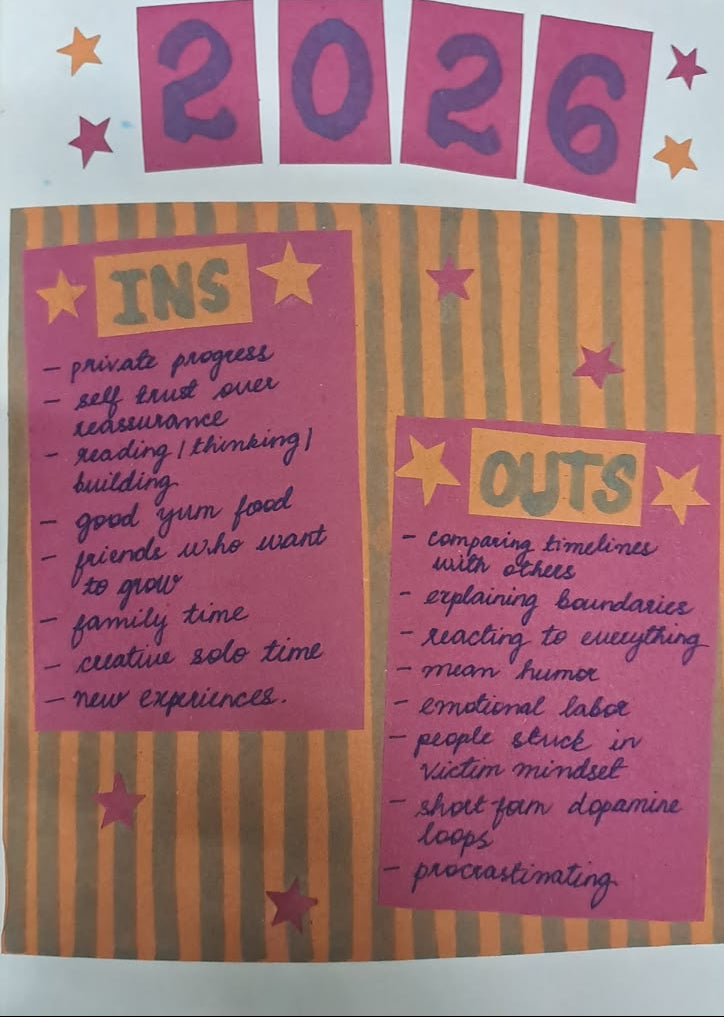 2026
INS
- private progress
- self trust over
reassurance
- reading / thinking /
building
- good yum food
- friends who want
to grow
- family time
- creative solo time
- new experiences.
OUTS
- comparing timelines
with others
- explaining boundaries
- reacting to everything
- mean humor
- emotional labor
- people stuck in
victim mindset
- short-form dopamine
loops
- procrastinating